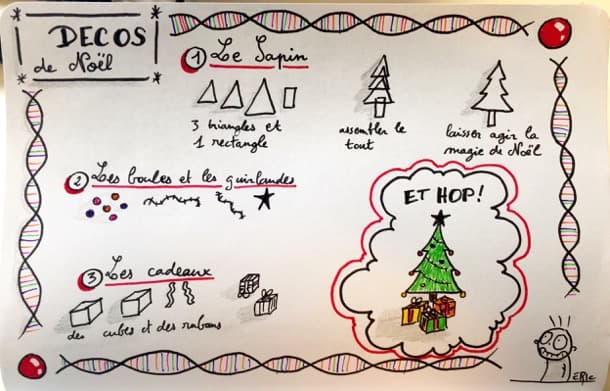 DECOS
de Noël
1 Le Sapin
3 triangles et
1 rectangle
assembler le
tout
laisser agir la
magie de Noël
2 Les boules et les guirlandes
ET HOP!
3 Les cadeaux
des cubes et des rubans
ERIC